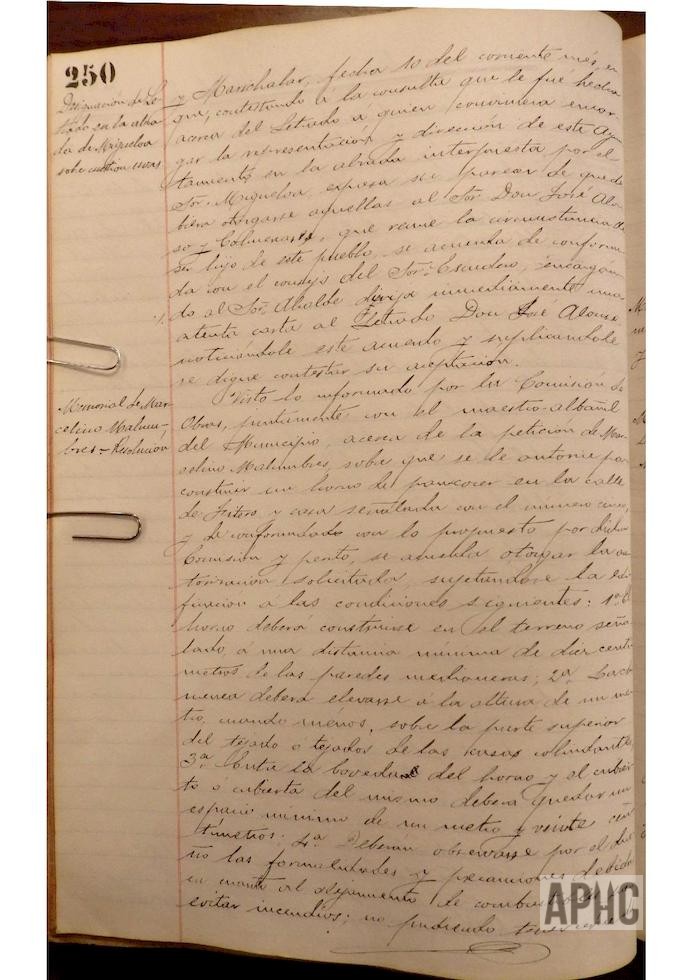 250
Designación de Le-
trado en la alza-
da de Miqueleiz
sobre cuestion uvas
y Marichalar, fecha 10 del corriente mes, en
que, contestando á la consulta que le fué hecha
acerca del Letrado á quien conviniera encar-
gar la representación y dirección de este Ayun-
tamiento en la alzada interpuesta por el
Sor. expone su parecer de que de-
biera otorgarse aquellas al Sor. Don José Alon-
so y Colmenares, que reune la circunstancia de
ser hijo de este pueblo, se acuerda de conformi-
dad con el consejo del Sor. Escudero, encargan-
do al Sor. Alcalde dirija inmediatamente una
atenta carta al Letrado Don José Alonso
noticiándole este acuerdo y suplicándole
se digne contestar su aceptación.
Memorial de Mar-
celino Malum-
bres = Resolución
Visto lo informado por la Comisión de
Obras, juntamente con el maestro-albañil
del Municipio, acerca de la petición de Mar-
celino Malumbres, sobre que se le autorice para
construir un horno de pan-cocer en la calle
de y casa señalada con el número cinco,
y de conformidad con lo propuesto por dicha
Comisión y perito, se acuerda otorgar la au-
torización solicitada, sujetándose la edi-
ficación á las condiciones siguientes: 1ª El
horno deberá construirse en el terreno seña-
lado, á una distancia mínima de diez centí-
metros de las paredes medianeras; 2ª La chi-
menea deberá elevarse á la altura de un me-
tro, cuando menos, sobre la parte superior
del tejado ó tejados de las casas colindantes;
3ª Entre la boveda del horno y el cubier-
to ó cubierta del mismo deberá quedar un
espacio mínimo de un metro y veinte cen-
tímetros; 4ª Deberán observarse por el due-
ño las formalidades y precauciones debidas
en cuanto al alejamiento de combustibles
evitar incendios; no pudiendo tener
APHC